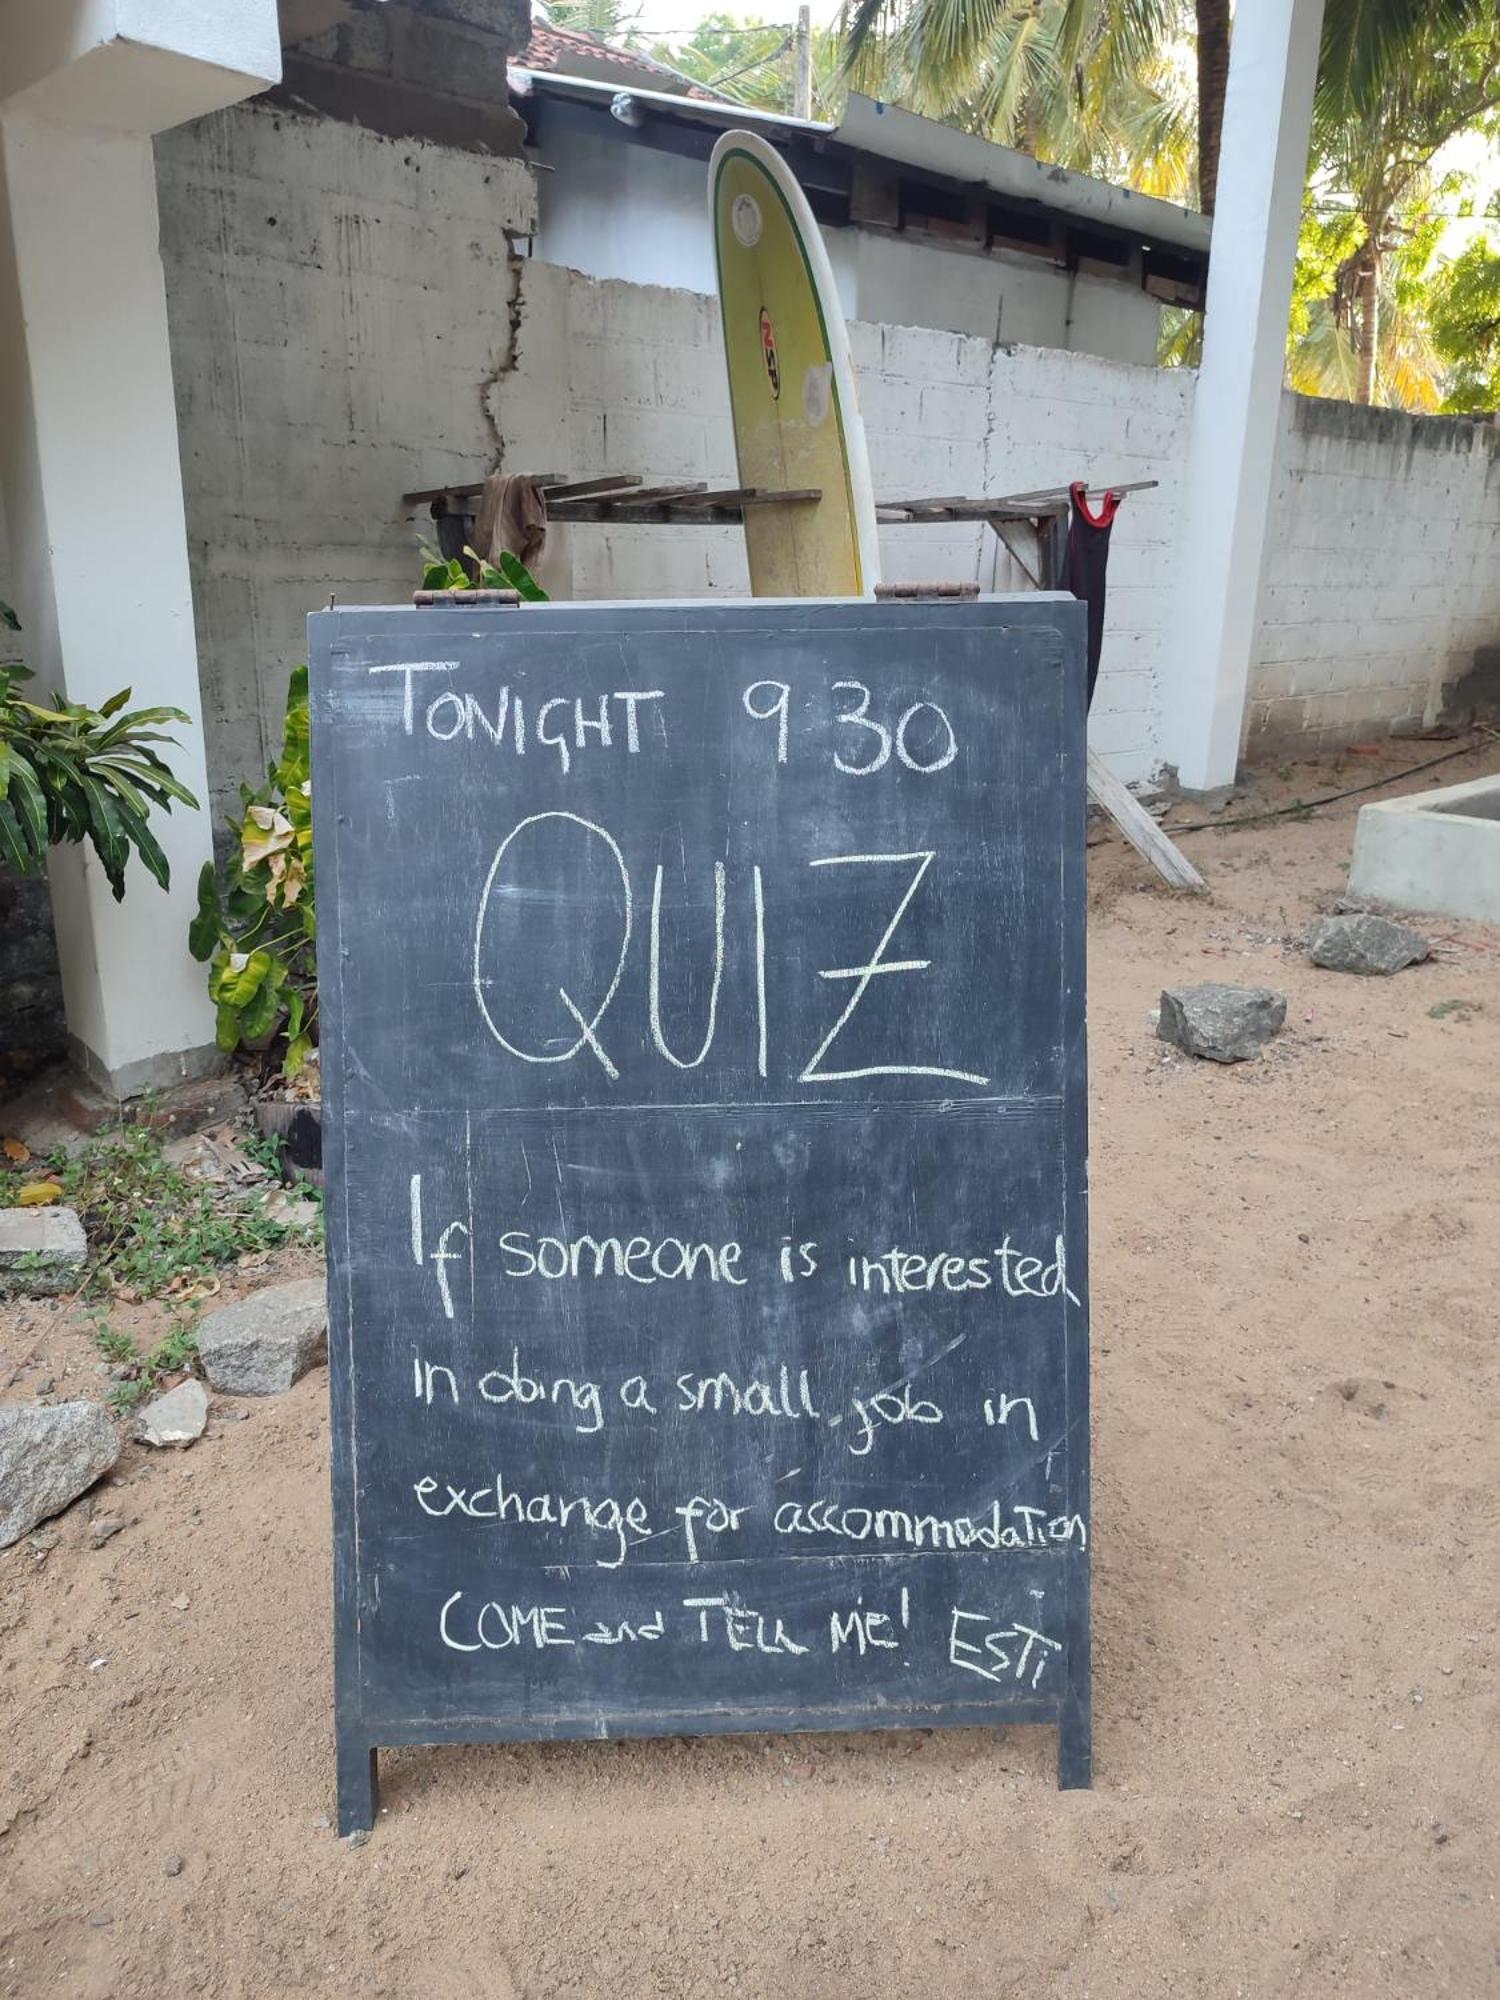 NSP
TONIGHT 9 30
QUIZ
If someone is interested
in doing a small job in
exchange for accommodation
COME and TELL ME! ESTi